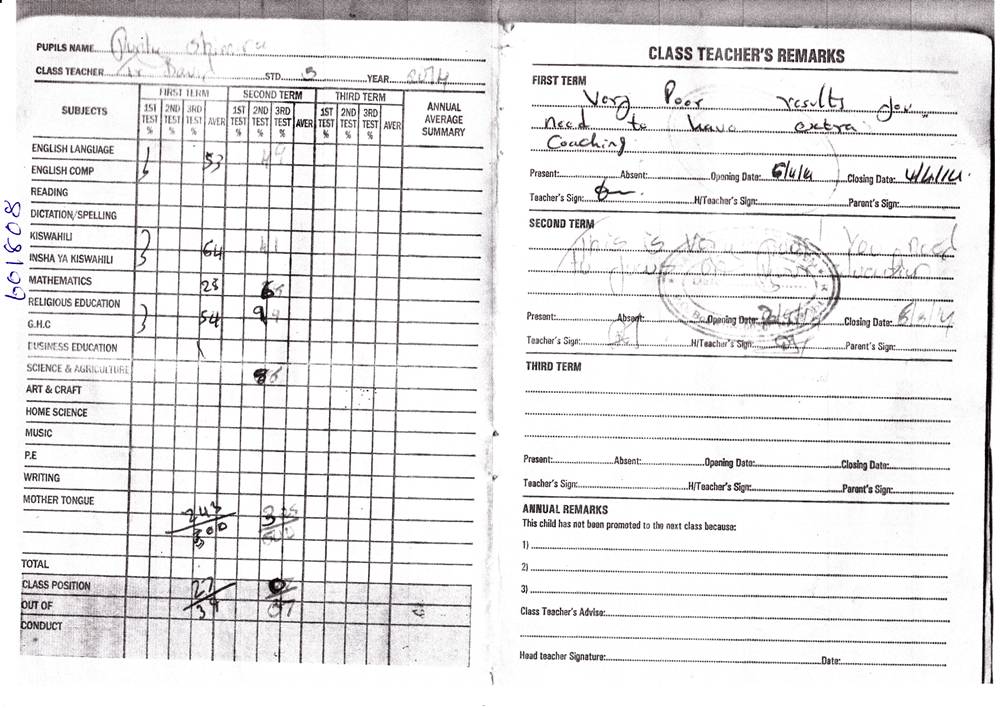 PUPILS NAME
CLASS TEACHER STD. 3 YEAR 2014
SUBJECTS FIRST TERM SECOND TERM THIRD TERM ANNUAL AVERAGE SUMMARY
1ST TEST % 2ND TEST % 3RD TEST % AVER 1ST TEST % 2ND TEST % 3RD TEST % AVER 1ST TEST % 2ND TEST % 3RD TEST % AVER
ENGLISH LANGUAGE 53
ENGLISH COMP
READING
DICTATION/SPELLING
KISWAHILI 64 41
INSHA YA KISWAHILI
MATHEMATICS 28
RELIGIOUS EDUCATION 54
G.H.C
BUSINESS EDUCATION
SCIENCE & AGRICULTURE
ART & CRAFT
HOME SCIENCE
MUSIC
P.E
WRITING
MOTHER TONGUE
243
TOTAL
CLASS POSITION 27
OUT OF 39
CONDUCT
601808
CLASS TEACHER'S REMARKS
FIRST TERM
Very Poor results you
need to have extra
Coaching
Present: Absent: Opening Date: Closing Date:
Teacher's Sign: H/Teacher's Sign: Parent's Sign:
SECOND TERM
This is very You need
to
Present: Absent: Opening Date: Closing Date:
Teacher's Sign: H/Teacher's Sign: Parent's Sign:
THIRD TERM
Present: Absent: Opening Date: Closing Date:
Teacher's Sign: H/Teacher's Sign: Parent's Sign:
ANNUAL REMARKS
This child has not been promoted to the next class because:
1)
2)
3)
Class Teacher's Advise:
Head teacher Signature: Date: